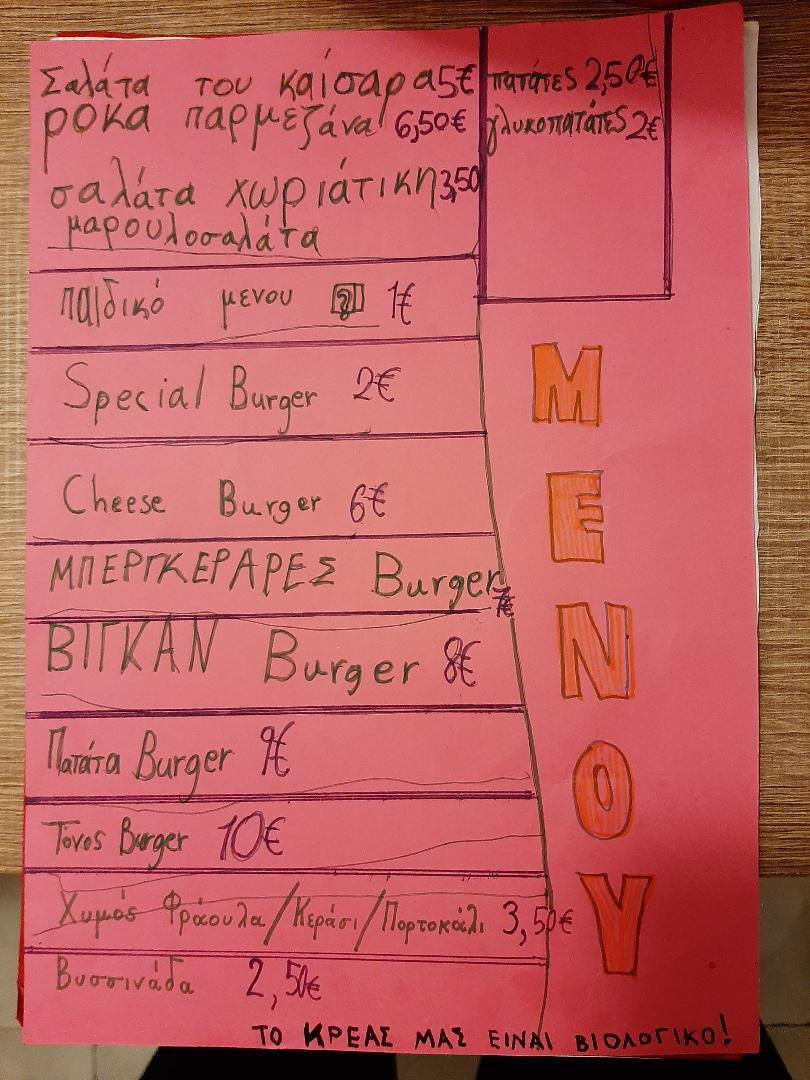 Σαλάτα του καίσαρα 5€
ρόκα παρμεζάνα 6,50€
σαλάτα χωριάτικη 3,50
μαρουλοσαλάτα
πατάτες 2,50€
γλυκοπατάτες 2€
παιδικό μενου ? 1€
Special Burger 2€
Cheese Burger 6€
ΜΠΕΡΓΚΕΡΑΡΕΣ Burger 7€
ΒΙΓΚΑΝ Burger 8€
Πατάτα Burger 9€
Τόνος Burger 10€
Χυμός Φράουλα/Κεράσι/Πορτοκάλι 3,50€
Βυσσινάδα 2,50€
ΜΕΝΟΥ
ΤΟ ΚΡΕΑΣ ΜΑΣ ΕΙΝΑΙ ΒΙΟΛΟΓΙΚΟ!